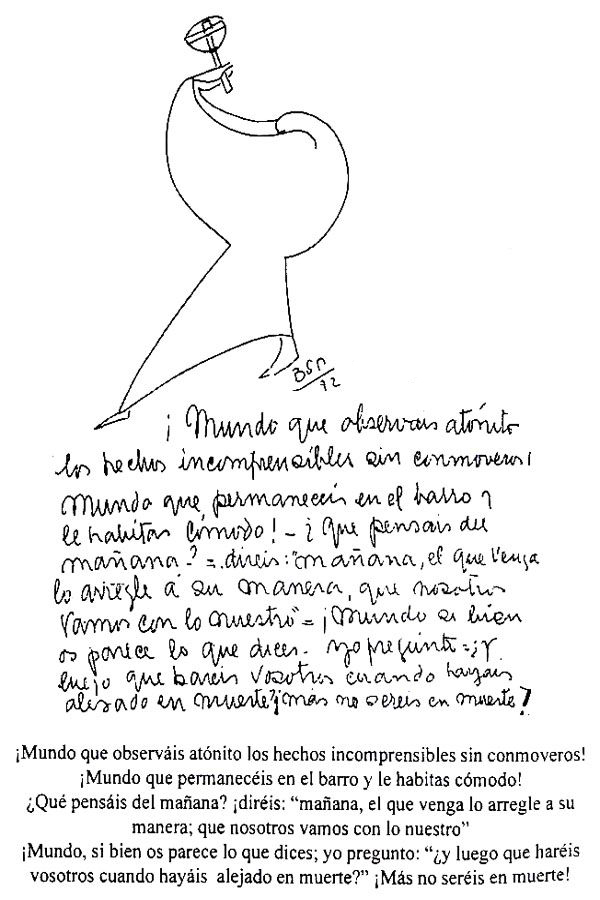 BSM
72
¡ Mundo que observais atónito
los hechos incomprensibles sin conmoveros!
Mundo que permaneceis en el barro y
le habitas cómodo! - ¿ Que pensais del
mañana-? = direis: "mañana, el que venga
lo arregle á su manera, que nosotros
vamos con lo nuestro" = ¡Mundo si bien
os parece lo que dices. yo pregunto = ¿Y
luejo que hareis vosotros cuando hayais
alejado en muerte? ¡mas no sereis en muerte!
¡Mundo que observáis atónito los hechos incomprensibles sin conmoveros!
¡Mundo que permanecéis en el barro y le habitas cómodo!
¿Qué pensáis del mañana? ¡diréis: “mañana, el que venga lo arregle a su
manera; que nosotros vamos con lo nuestro”
¡Mundo, si bien os parece lo que dices; yo pregunto: “¿y luego que haréis
vosotros cuando hayáis alejado en muerte?” ¡Más no seréis en muerte!